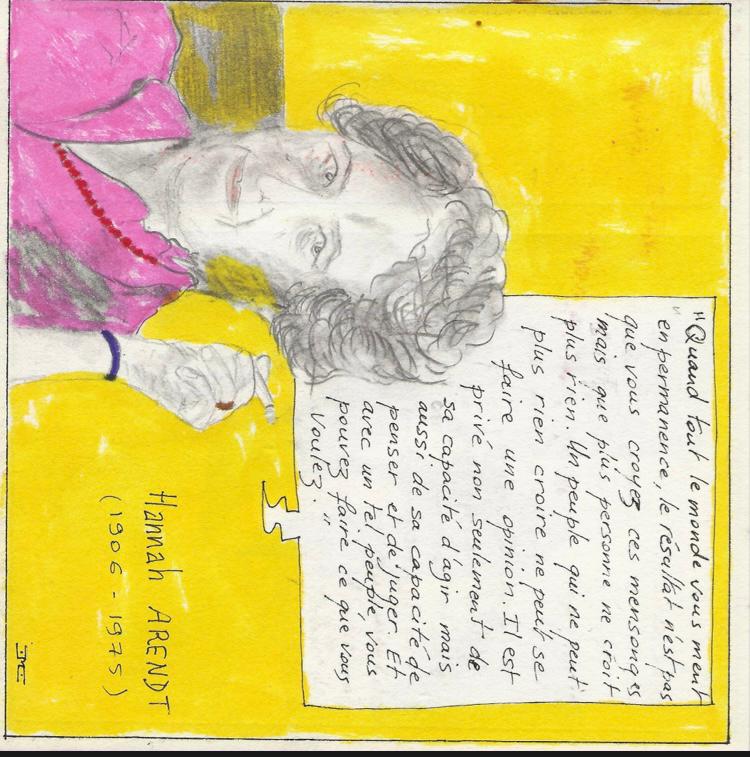 "Quand tout le monde vous ment
en permanence, le résultat n'est pas
que vous croyez ces mensonges
mais que plus personne ne croit
plus rien. Un peuple qui ne peut
plus rien croire ne peut se
faire une opinion. Il est
privé non seulement de
sa capacité d'agir mais
aussi de sa capacité de
penser et de juger. Et
avec un tel peuple, vous
pouvez faire ce que vous
voulez."
Hannah ARENDT
(1906 - 1975)